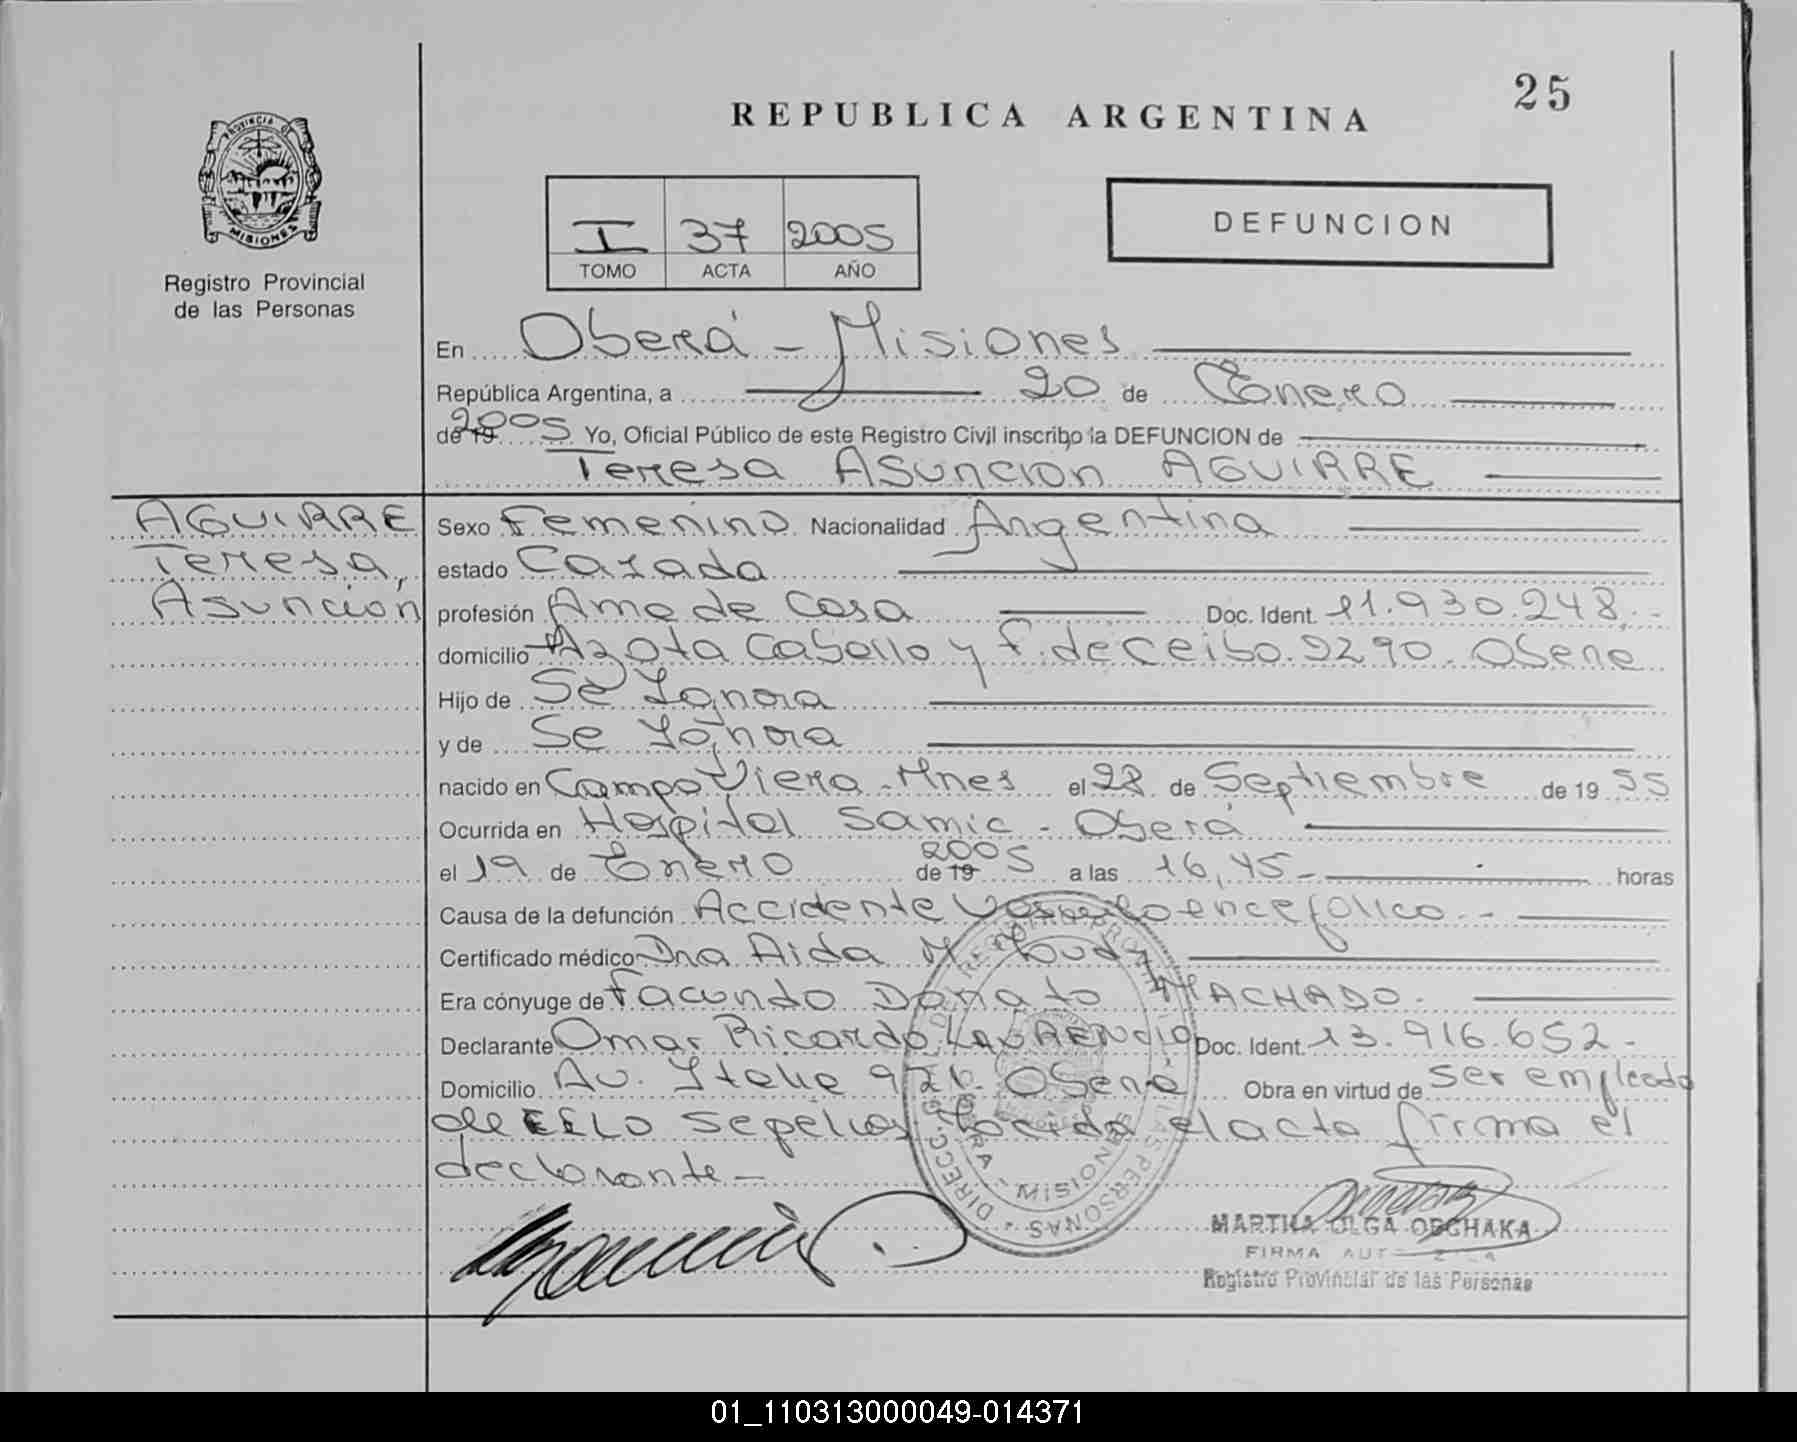 25
REPUBLICA ARGENTINA
PROVINCIA DE
MISIONES
Registro Provincial
de las Personas
I 37 2005
TOMO ACTA AÑO
DEFUNCION
En Oberá - Misiones
República Argentina, a 20 de Enero
de 19 2005 Yo, Oficial Público de este Registro Civil inscribo la DEFUNCION de
Teresa Asuncion AGUIRRE
AGUIRRE
Teresa,
Asuncion
Sexo Femenino Nacionalidad Argentina
estado Casada
profesión Ama de Casa Doc. Ident. 11.930.248.-
domicilio Azota Caballo y F. de Ceibo. 9290. Obera
Hijo de Se Ignora
y de Se Ignora
nacido en Campo Viera - Mnes el 28 de Septiembre de 19 55
Ocurrida en Hospital Samic - Oberá
el 19 de Enero de 19 2005 a las 16,45 - horas
Causa de la defunción Accidente Vasculo encefalico.-
Certificado médico Dra Aida M.
Era cónyuge de Facundo Donato MACHADO.
Declarante Omar Ricardo Doc. Ident. 13.916.652.-
Domicilio Av. Italia 921. Oberá Obra en virtud de ser empleado
de CELO Sepelios, Leida el acta firma el
declarante -
MISIONES
MARTHA OLGA OBCHAKA
FIRMA
Registro Provincial de las Personas
01_110313000049-014371